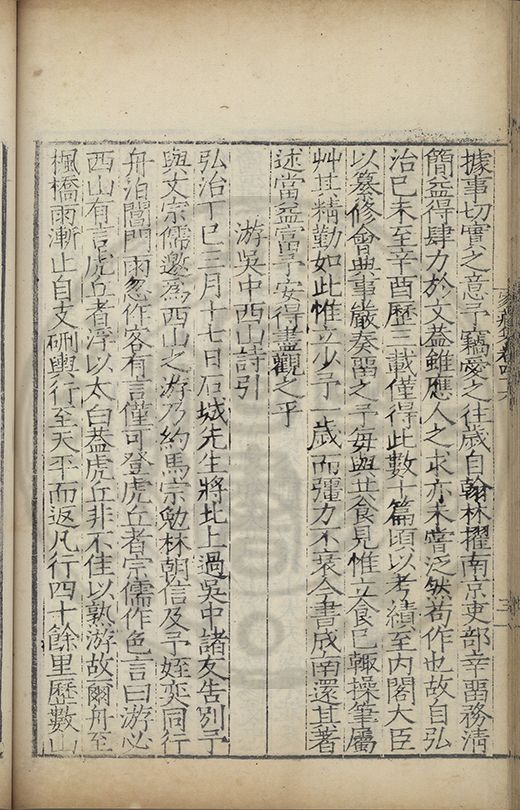 據事切實之意予竊愛之往歲自翰林擢南京吏部辛畱務清
簡益得肆力於文蓋雖應人之求亦未嘗泛然苟作也故自弘
治己未至辛酉歷三載僅得此數十篇頃以考績至內閣大臣
以纂修會典事嚴奏畱之予每與共食見惟立食已輙操筆屬
艸其精勤如此惟立少予一歲而彊力不衰今書成南還其著
述當益富予安得盡觀之乎
游吳中西山詩引
弘治丁巳三月十七日石城先生將北上過吳中諸友告別予
與文宗儒邀為西山之游乃約馬宗勉林朝信及予姪奕同行
舟泊閶門雨忽作客有言僅可登虎丘者宗儒作色言曰游必
西山有言虎丘者浮以太白蓋虎丘非不佳以熟游故爾舟至
楓橋雨漸止自支硎輿行至天平而返凡行四十餘里歷數山